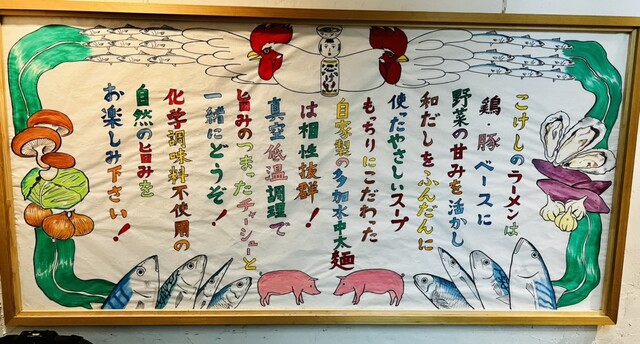 こけしのラーメンは
鶏 豚 ベースに
野菜の甘みを活かし
和だしをふんだんに
使ったやさしいスープ
もっちりにこだわった
自家製の多加水中太麺
は相性抜群！
真空低温調理で
旨みのつまったチャーシューと
一緒にどうぞ！
化学調味料不使用の
自然の旨みを
お楽しみ下さい！